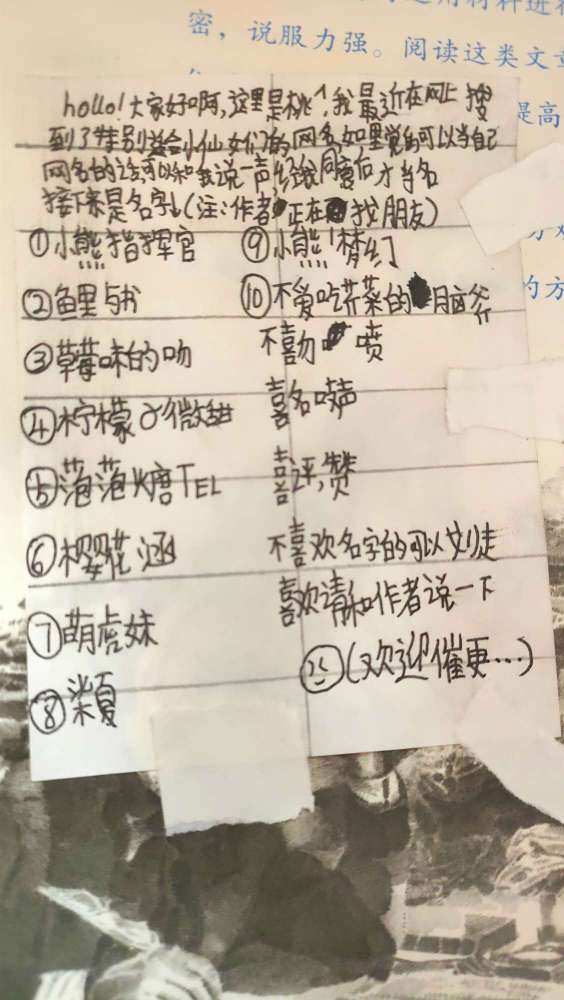 密，说服力强。阅读这类文章
提高
的方
hollo!大家好啊,这里是桃,我最近在网上搜
到了特别适合小仙女们的网名,如果觉的可以当自己
网名的话可以和我说一声,经我同意后才当名
接下来是名字↓(注:作者正在找朋友)
①小熊指挥官
②鱼里与书
③草莓味的吻
④柠檬の微甜
⑤菠菠糖TEL
⑥樱花涵
⑦萌虎妹
⑧柒夏
⑨小熊!梦幻
⑩不爱吃芥菜的脑斧
不喜勿喷
喜名吱声
喜评,赞
不喜欢名字的可以划走
喜欢请和作者说一下
(欢迎催更…)